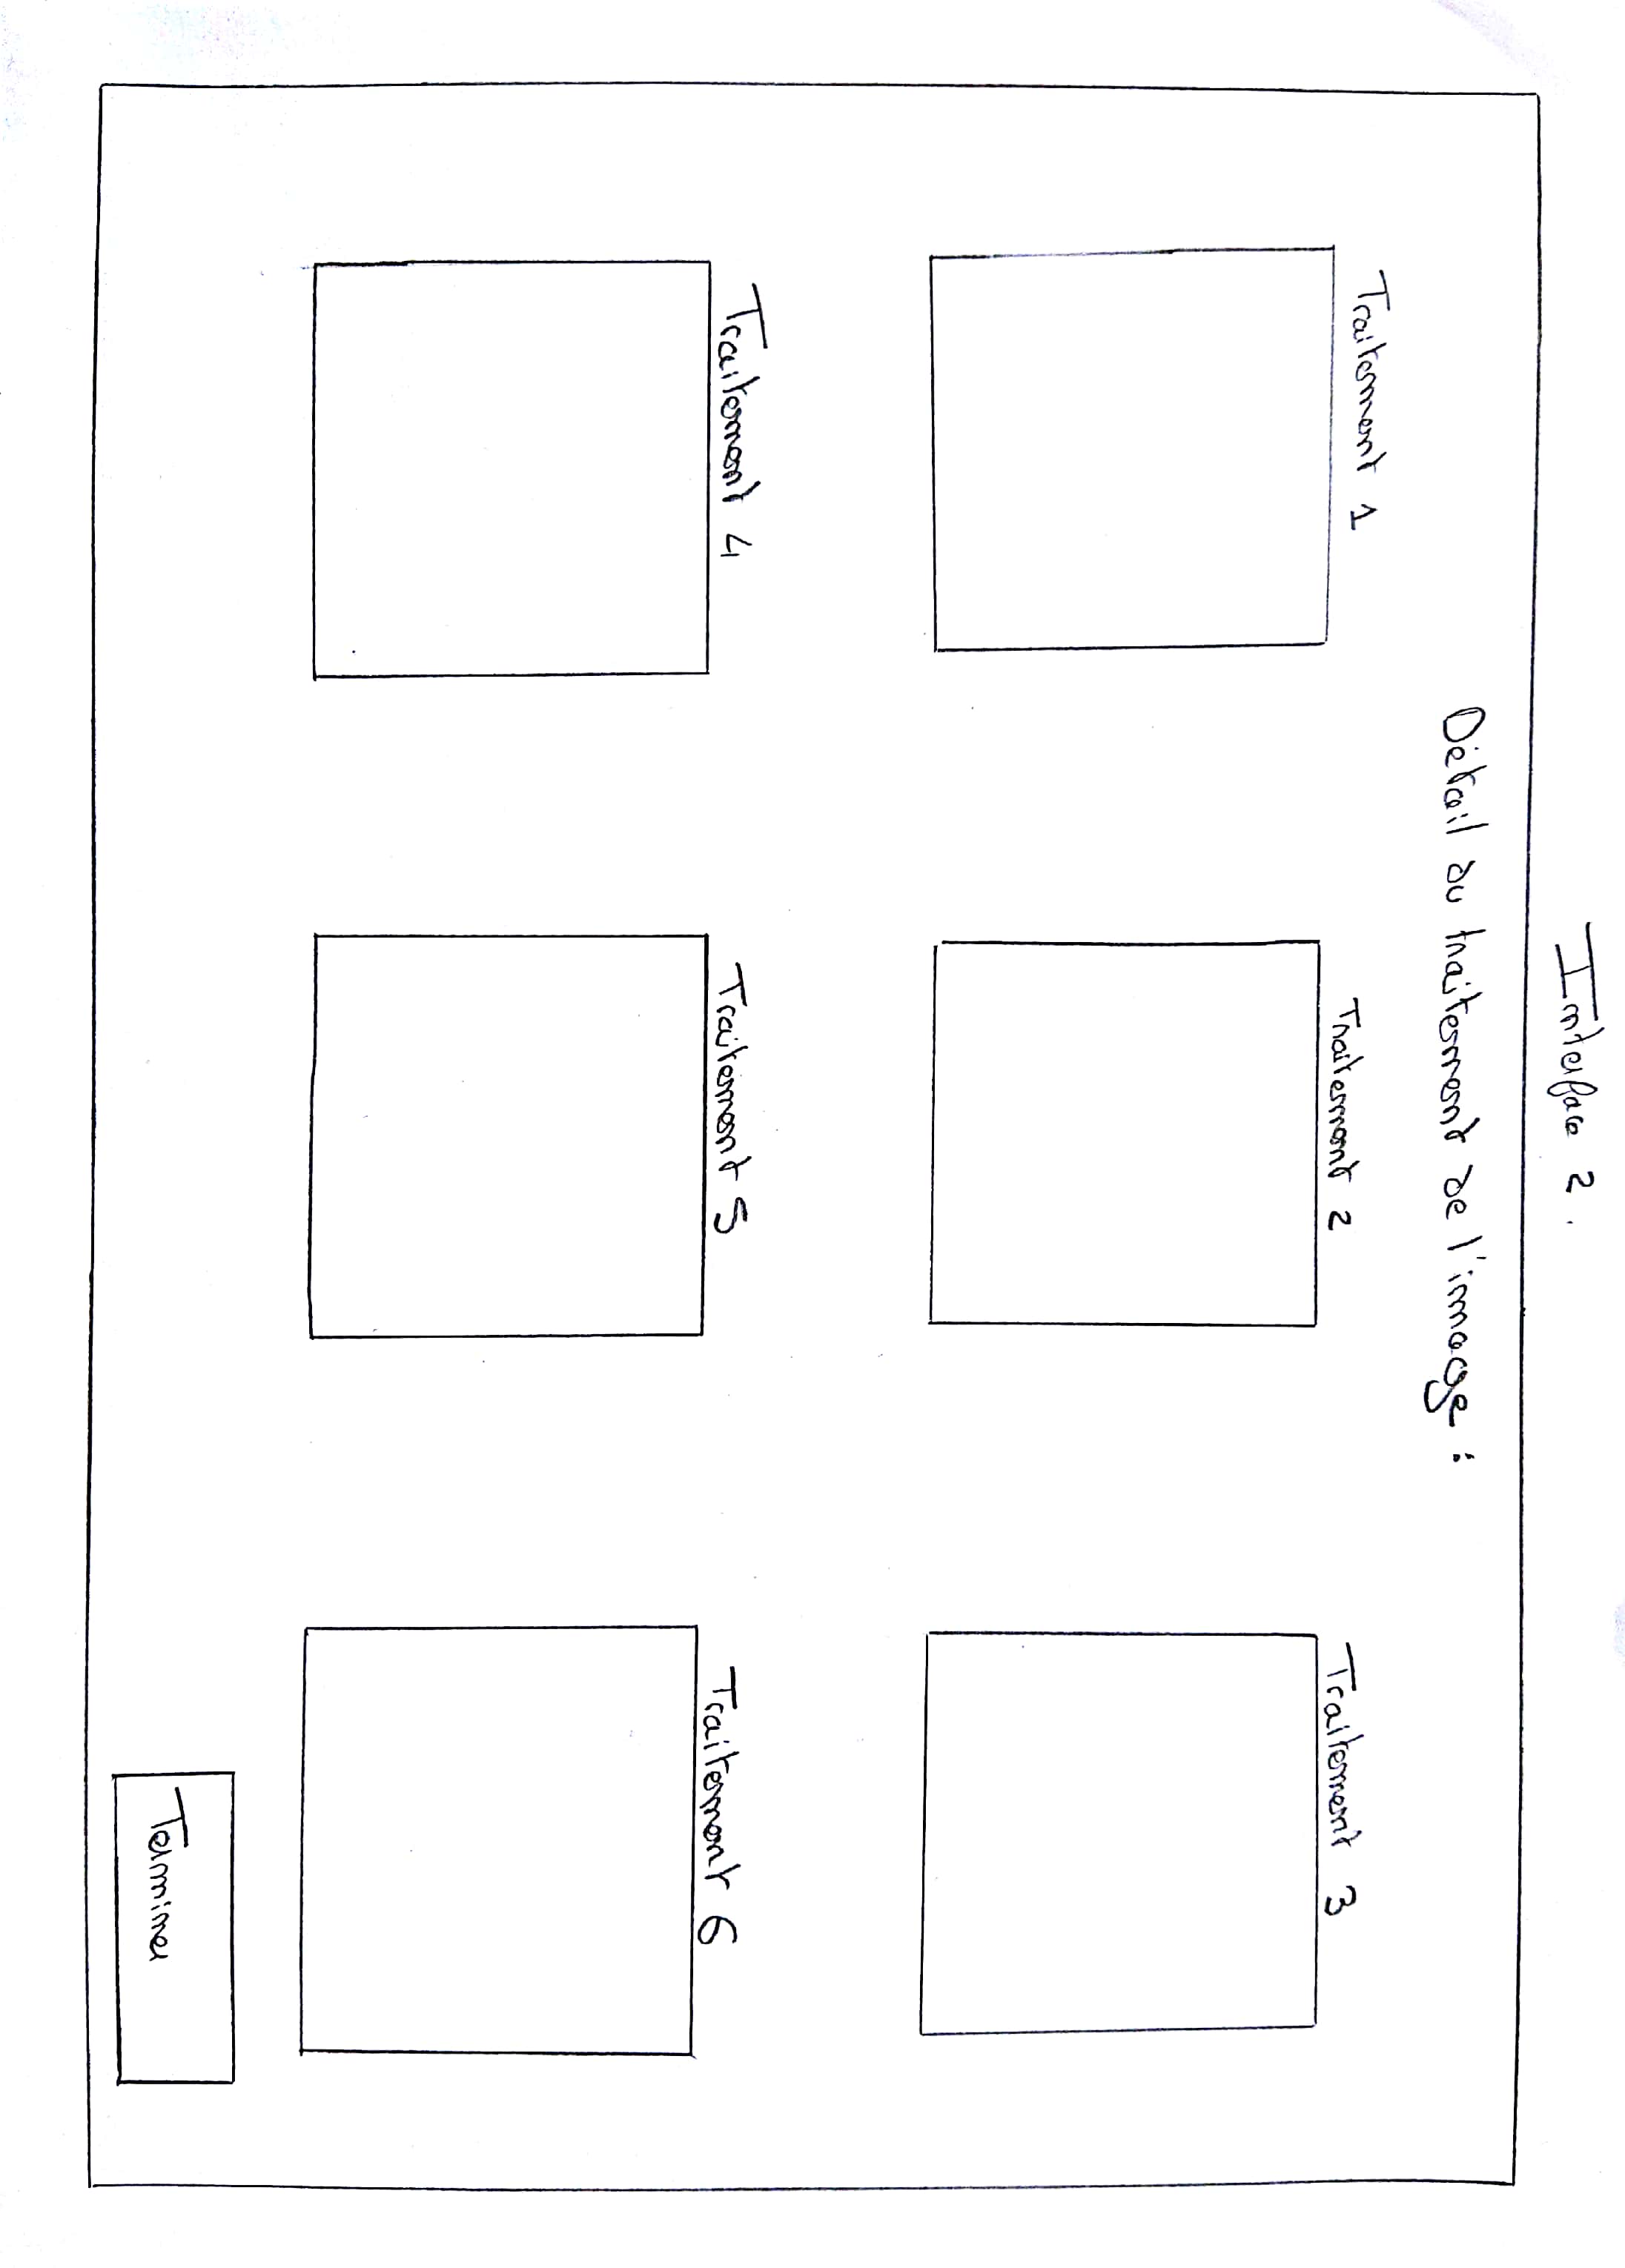 Interface 2.
Détail du traitement de l'image :
Traitement 1
Traitement 2
Traitement 3
Traitement 4
Traitement 5
Traitement 6
Terminer